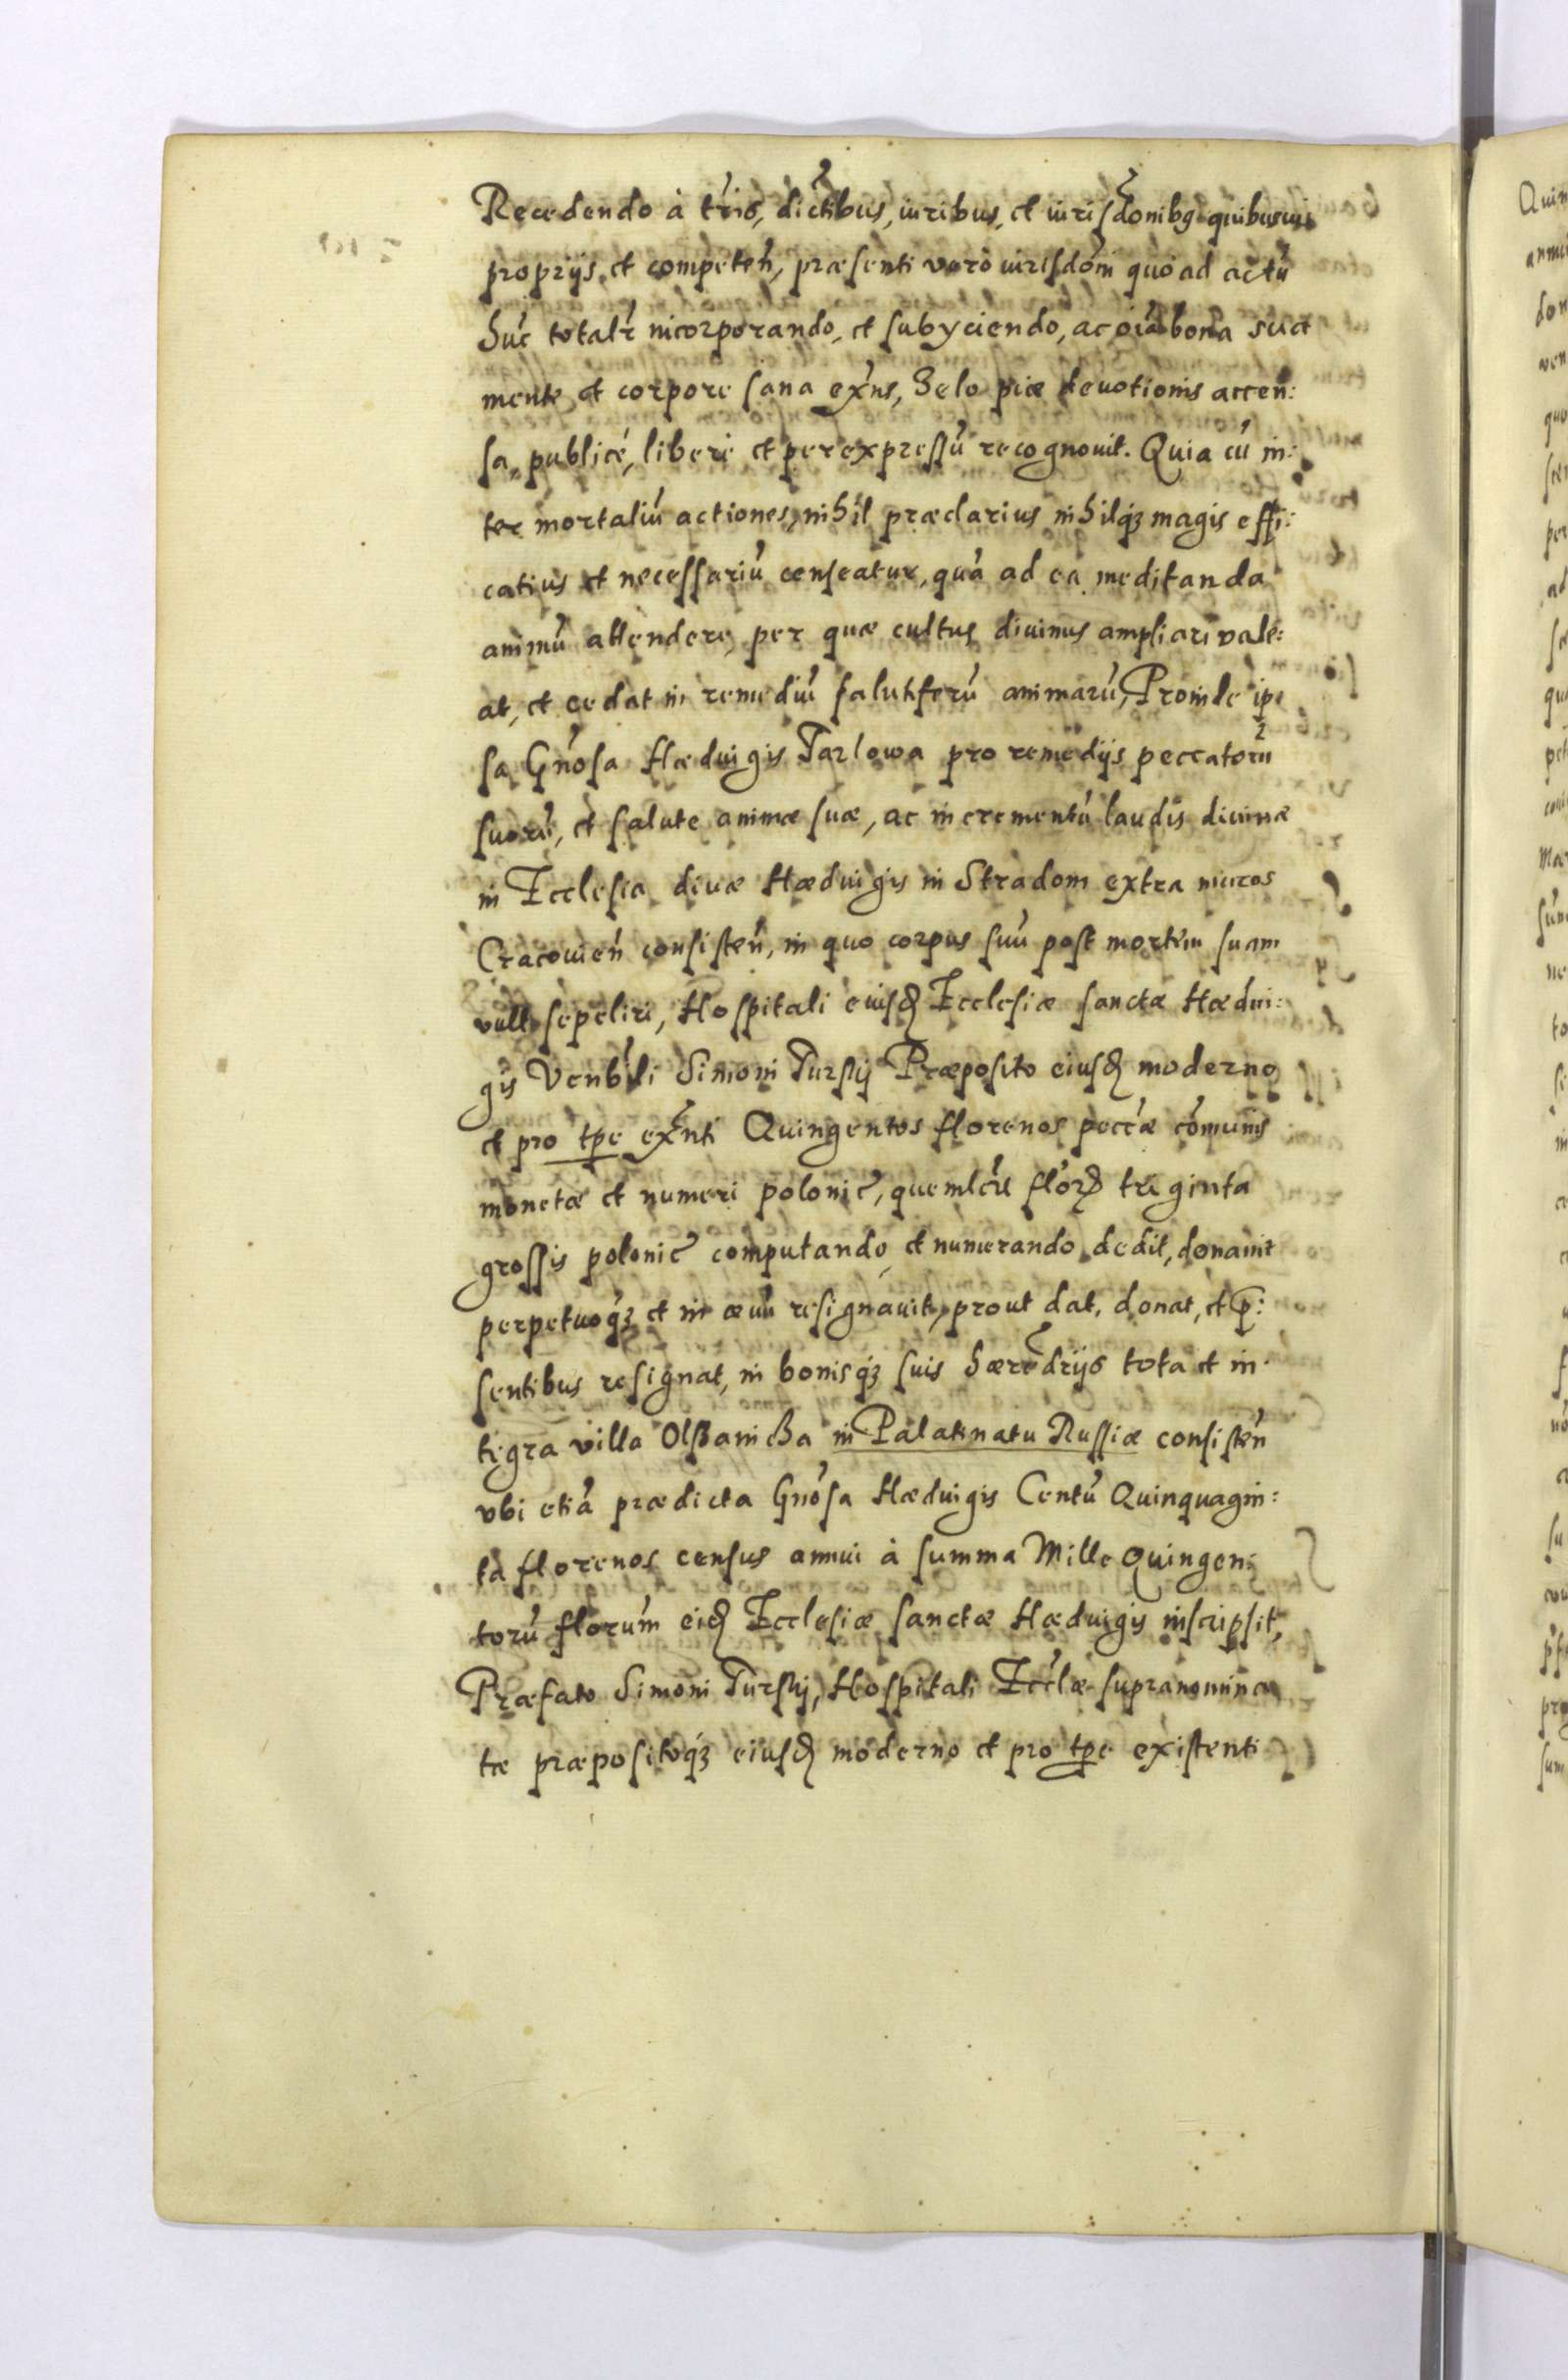 Recedendo à tr̃is, dict̃ibus, iuribus, et iurisd̃onibq quibusuis
proprijs, et competeñ, præsenti verò iurisdõni quo ad actũ
hũc totalr̃ incorporando, et subyciendo, ac oĩa bona sua
mente et corpore sana exñs, Zelo piæ deuotionis accen:
sa, publicè, liberè et per expressũ recognouit. Quia cũ in:
ter mortaliũ actiones, nihil præclarius nihilq́3 magis effi:
catius et necessariũ censeatur, quã ad ea meditanda
animũ attendere, per quæ cultus diuinus ampliari vale:
at, et cedat in remediũ salutiferũ animarũ, Proinde ip:
sa Gñosa Hæduigis Tarlowa pro remedijs peccatorũ
suorũ, et salute animæ suæ, ac incrementũ laudis diuinæ
in Ecclesia diuæ Hæduigis in Stradom extra muros
Cracouieñ consisteñ, in quo corpus suũ post mortem suam
vult sepeliri, Hospitali eiusd̃ Ecclesiæ sanctæ Hædui:
gis Venb̃li Simoni Turskij Præposito eiusd̃ moderno
et pro tp̃e exñti Quingentos florenos pecc̃æ cõmunis
monetæ et numeri polonic̃, quemlc̃u flor̃ triginta
grossis polonic̃ computando, et numerando dedit, donauit
perpetuoq́3 et in æuũ resignauit, prout dat, donat, et p̃:
sentibus resignat, in bonisq́3 suis hæredr̃ijs tota et in
tegra villa Olßanicza in Palatinatu Russiæ consisteñ
vbi etiã prædicta Gñosa Hæduigis Centũ Quinquagin:
ta florenos census annui à summa Mille Quingen:
torũ florum̃ eid̃ Ecclesiæ sanctæ Hæduigis inscripsit,
Præfato Simoni Turskij, Hospitali Eccl̃æ supranomina
tæ præpositoq́3 eiusd̃ moderno et pro tp̃e existenti